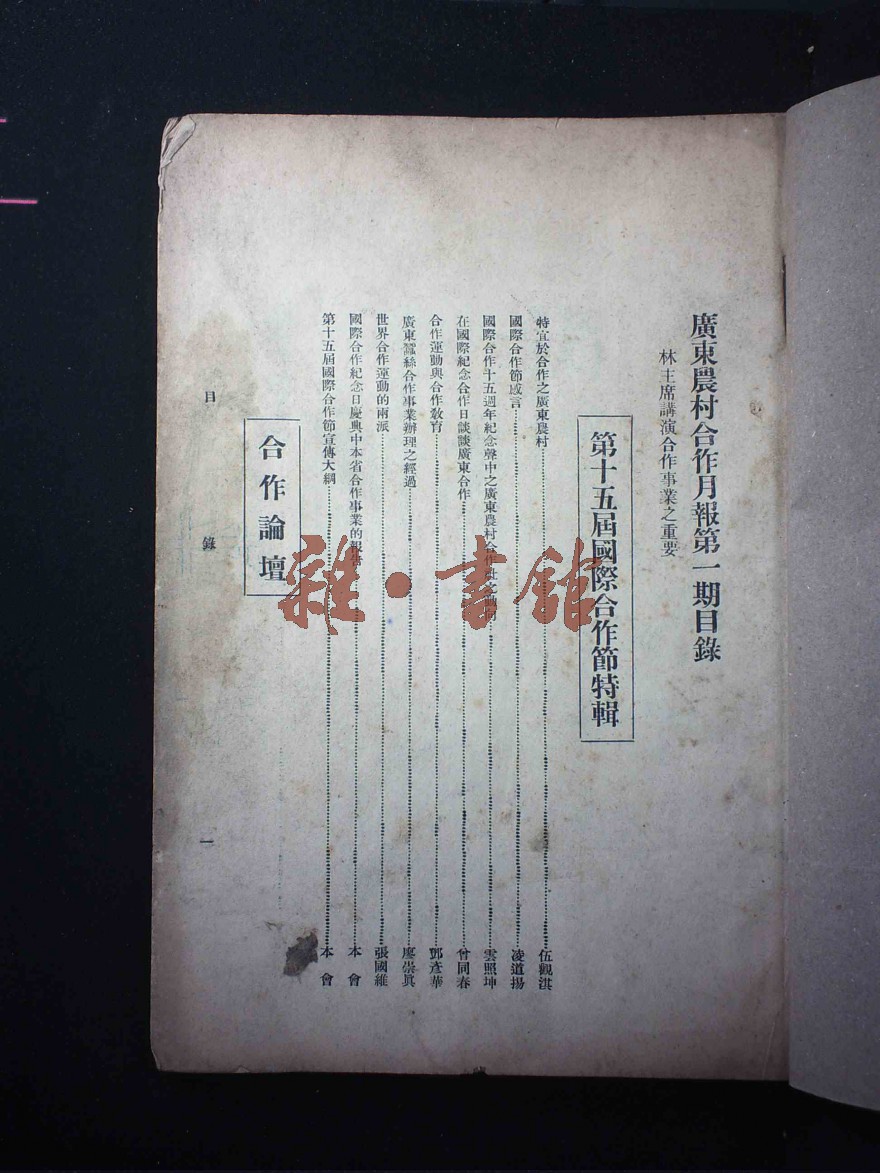 廣東農村合作月報第一期目錄
林主席講演合作事業之重要
第十五屆國際合作節特輯
特宜於合作之廣東農村 伍觀淇
國際合作節感言 凌道揚
國際合作十五週年紀念聲中之廣東農村合作社之 雲照坤
在國際紀念合作日談談廣東合作 曾同春
合作運動與合作敎育 鄧彥華
廣東蠶絲合作事業辦理之經過 廖崇眞
世界合作運動的兩派 張國維
國際合作紀念日慶典中本省合作事業的報告 本會
第十五屆國際合作節宣傳大綱 本會
合作論壇
目錄 一
雜·書館